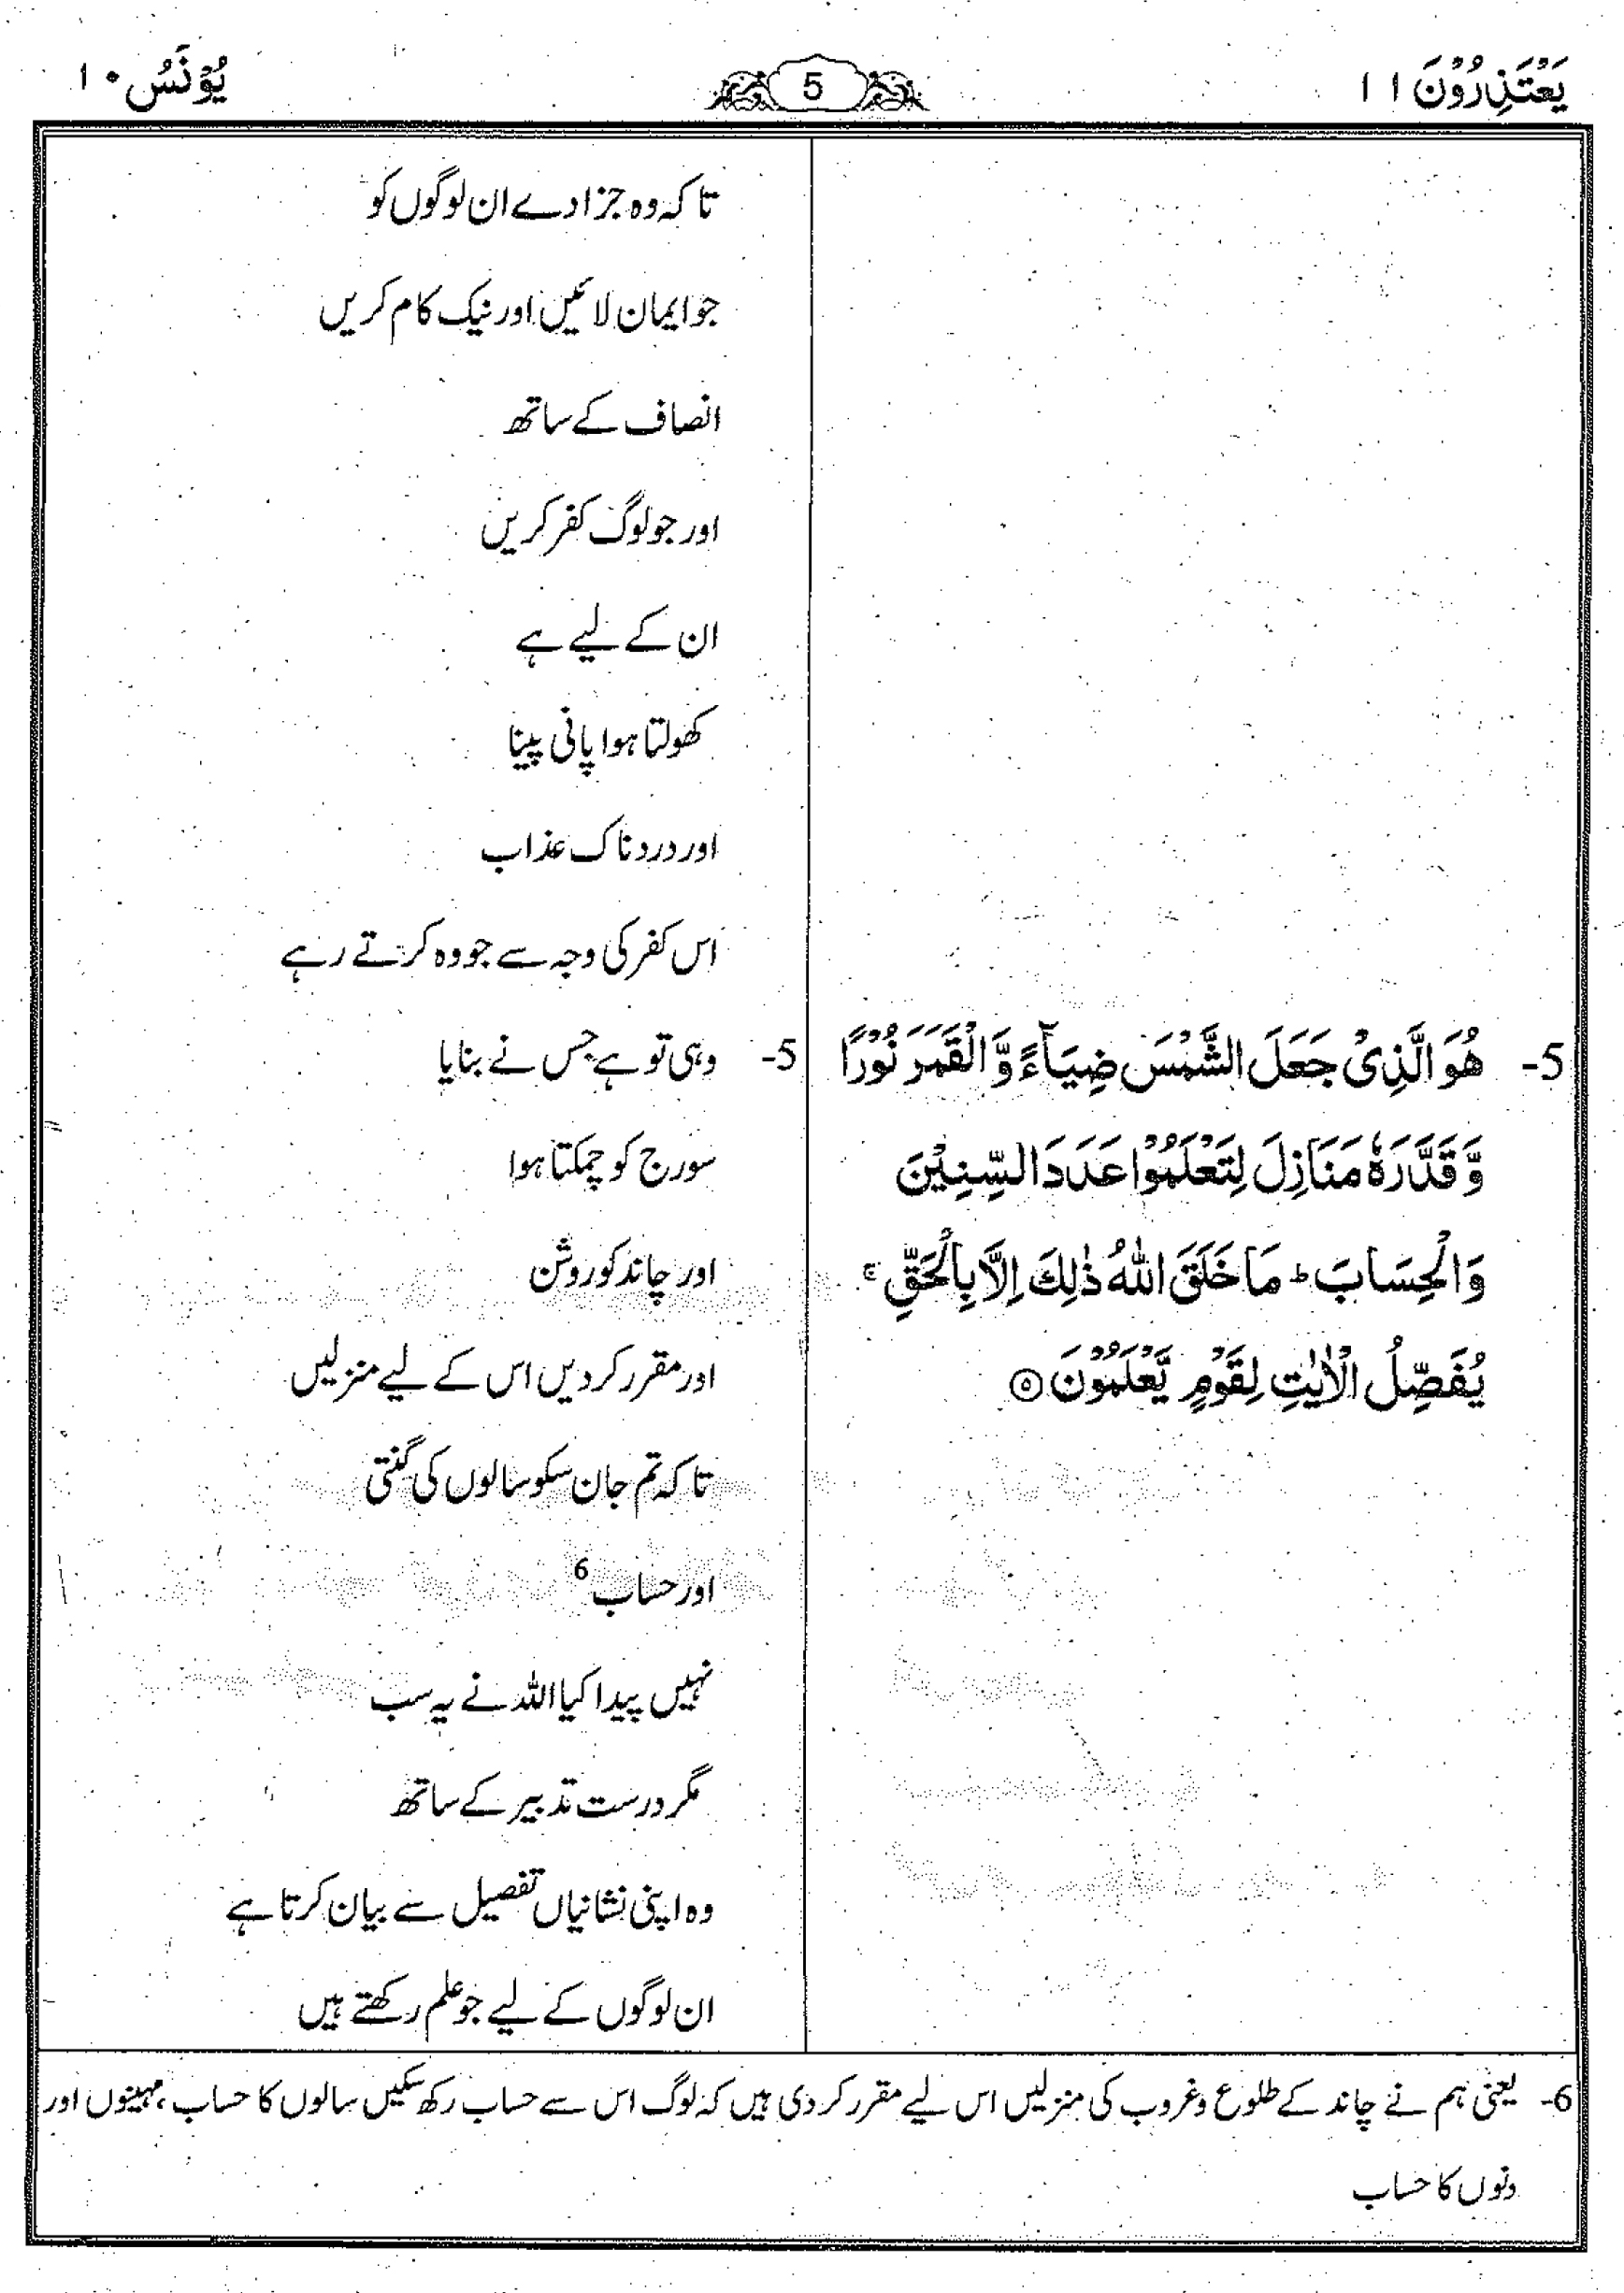 یَعْتَذِرُوْنَ ۱۱
5
یُوْنَسُ ۱۰
تاکہ وہ جزا دے ان لوگوں کو
جو ایمان لائیں اور نیک کام کریں
انصاف کے ساتھ
اور جو لوگ کفر کریں
ان کے لیے ہے
کھولتا ہوا پانی پینا
اور دردناک عذاب
اس کفر کی وجہ سے جو وہ کرتے رہے
5- هُوَ الَّذِیْ جَعَلَ الشَّمْسَ ضِیَآءً وَّ الْقَمَرَ نُوْرًا
وَّ قَدَّرَهٗ مَنَازِلَ لِتَعْلَمُوْا عَدَدَ السِّنِیْنَ
وَ الْحِسَابَ ؕ مَا خَلَقَ اللّٰهُ ذٰلِكَ اِلَّا بِالْحَقِّ ۚ
یُفَصِّلُ الْاٰیٰتِ لِقَوْمٍ یَّعْلَمُوْنَ ۵
5- وہی تو ہے جس نے بنایا
سورج کو چمکتا ہوا
اور چاند کو روشن
اور مقرر کر دیں اس کے لیے منزلیں
تاکہ تم جان سکو سالوں کی گنتی
اور حساب 6
نہیں پیدا کیا اللہ نے یہ سب
مگر درست تدبیر کے ساتھ
وہ اپنی نشانیاں تفصیل سے بیان کرتا ہے
ان لوگوں کے لیے جو علم رکھتے ہیں
6- یعنی ہم نے چاند کے طلوع و غروب کی منزلیں اس لیے مقرر کر دی ہیں کہ لوگ اس سے حساب رکھ سکیں سالوں کا حساب، مہینوں اور
دنوں کا حساب